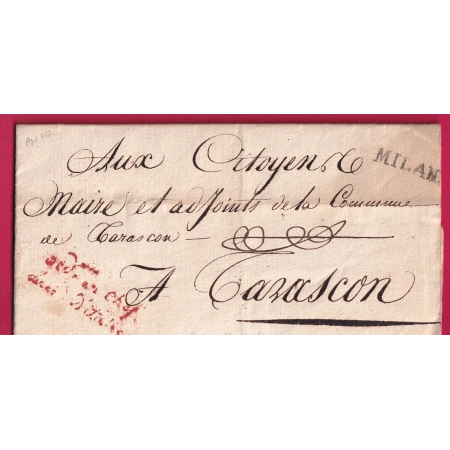 Aux Citoyens
MILAN
Maire et adjoints de la Commune
de Tarascon
A Tarascon